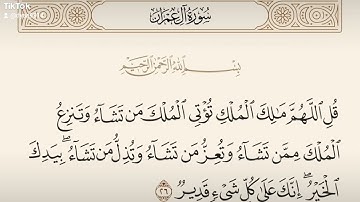 TikTok
سُورَةُ آلِ عِمْرَانَ
بِسْمِ اللَّهِ الرَّحْمَٰنِ الرَّحِيمِ
قُلِ ٱللَّهُمَّ مَٰلِكَ ٱلْمُلْكِ تُؤْتِى ٱلْمُلْكَ مَن تَشَآءُ وَتَنزِعُ
ٱلْمُلْكَ مِمَّن تَشَآءُ وَتُعِزُّ مَن تَشَآءُ وَتُذِلُّ مَن تَشَآءُ ۖ بِيَدِكَ
ٱلْخَيْرُ ۖ إِنَّكَ عَلَىٰ كُلِّ شَىْءٍ قَدِيرٌ ٢٦